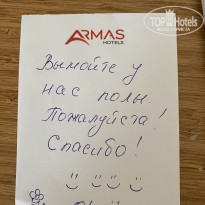 TopHotels
ARMAS
HOTELS
Вымойте у
нас полы
Пожалуйста!
Спасибо!